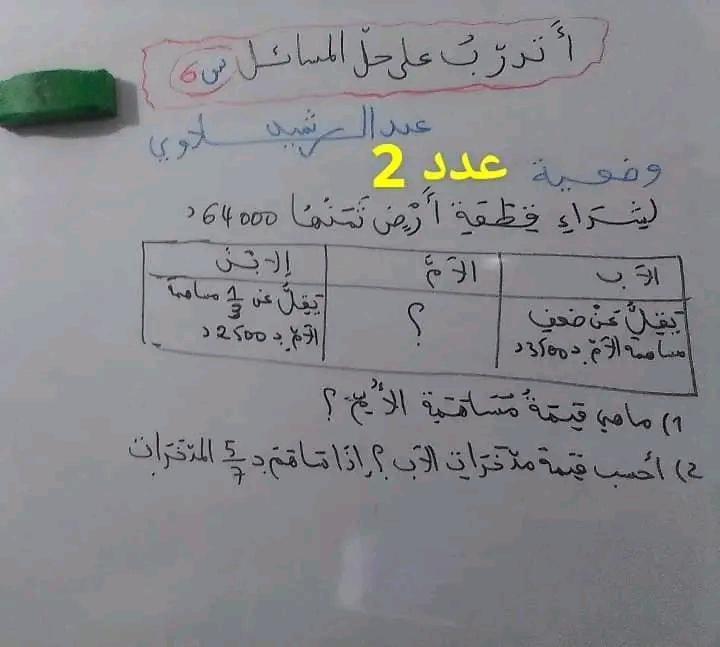 أتدرّبُ على حلّ المسائل س 6
عبد الرشيد سلاوي
وضعية عدد 2
لِشِرَاءِ قِطْعَةِ أَرْضٍ ثَمَنُهَا 64000د
الأب الأمّ الابن
يَقِلُّ عَنْ ضعفِ مساهمة الأمّ بـ 3500د
؟
يَقِلُّ عن 1/3 مساهمة الأمّ بـ 2500د
1) ما هي قيمةُ مُسَاهَمَةِ الأمّ؟
2) أحسب قيمة مدّخراتِ الأب؟ إذا ساهم بـ 5/7 المدّخرات